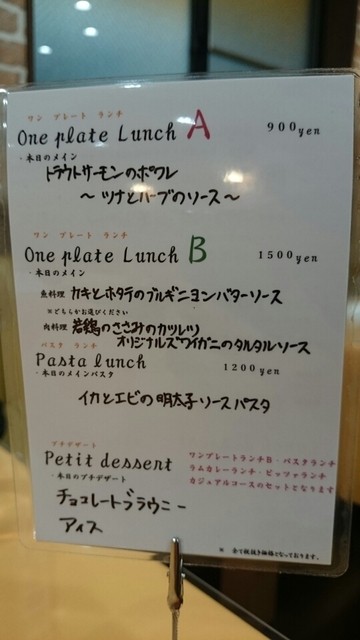 ワン プレート ランチ
One plate Lunch A 900yen
・本日のメイン
トラウトサーモンのポワレ
～ツナとハーブのソース～
ワン プレート ランチ
One plate Lunch B 1500yen
・本日のメイン
魚料理 カキとホタテのブルギニヨンバターソース
※どちらかお選びください
肉料理 若鶏のささみのカツレツ
オリジナルズワイガニのタルタルソース
パスタ ランチ
Pasta lunch 1200yen
・本日のメインパスタ
イカとエビの明太子ソースパスタ
プチデザート
Petit dessert
・本日のプチデザート
チョコレートブラウニー
アイス
ワンプレートランチB・パスタランチ
ラムカレーランチ・ピッツァランチ
カジュアルコースのセットとなります
※ 全て税抜き価格となっております。